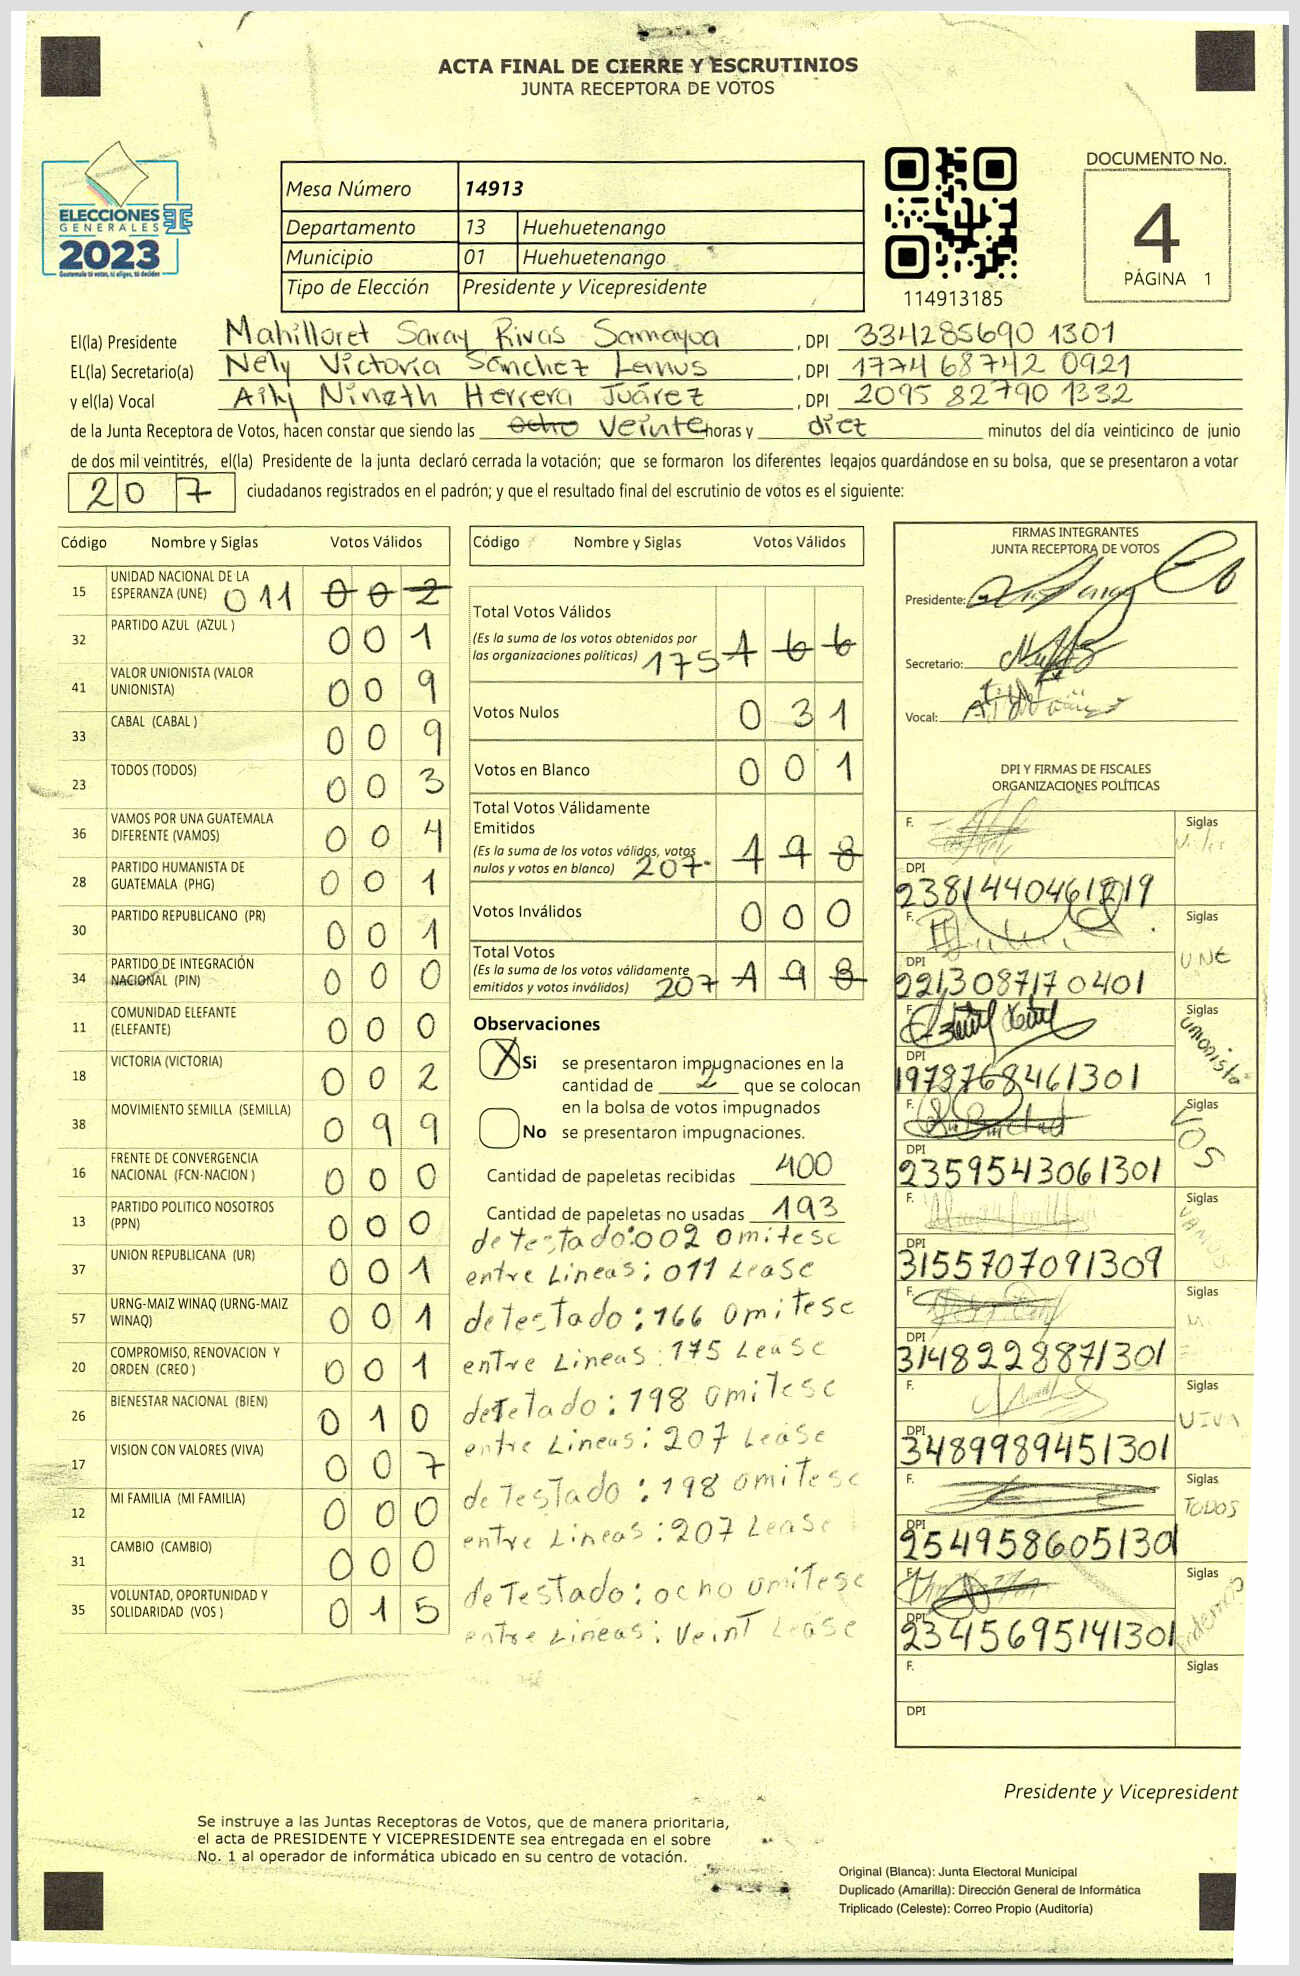 ACTA FINAL DE CIERRE Y ESCRUTINIOS
JUNTA RECEPTORA DE VOTOS
ELECCIONES
GENERALES
2023
Guatemala tú votas, tú eliges, tú decides
Mesa Número 14913
Departamento 13 Huehuetenango
Municipio 01 Huehuetenango
Tipo de Elección Presidente y Vicepresidente
114913185
DOCUMENTO No.
4
PÁGINA 1
El(la) Presidente Mahilloret Saray Rivas Samayoa , DPI 334285690 1301
EL(la) Secretario(a) Nely Victoria Sánchez Lemus , DPI 1774 68742 0921
y el(la) Vocal Aily Nineth Herrera Juárez , DPI 2095 82790 1332
de la Junta Receptora de Votos, hacen constar que siendo las ocho veinte horas y diez minutos del día veinticinco de junio
de dos mil veintitrés, el(la) Presidente de la junta declaró cerrada la votación; que se formaron los diferentes legajos guardándose en su bolsa, que se presentaron a votar
207 ciudadanos registrados en el padrón; y que el resultado final del escrutinio de votos es el siguiente:
Código Nombre y Siglas Votos Válidos
15 UNIDAD NACIONAL DE LA ESPERANZA (UNE) 011 002
32 PARTIDO AZUL (AZUL ) 001
41 VALOR UNIONISTA (VALOR UNIONISTA) 009
33 CABAL (CABAL ) 009
23 TODOS (TODOS) 003
36 VAMOS POR UNA GUATEMALA DIFERENTE (VAMOS) 004
28 PARTIDO HUMANISTA DE GUATEMALA (PHG) 001
30 PARTIDO REPUBLICANO (PR) 001
34 PARTIDO DE INTEGRACIÓN NACIONAL (PIN) 000
11 COMUNIDAD ELEFANTE (ELEFANTE) 000
18 VICTORIA (VICTORIA) 002
38 MOVIMIENTO SEMILLA (SEMILLA) 099
16 FRENTE DE CONVERGENCIA NACIONAL (FCN-NACION ) 000
13 PARTIDO POLITICO NOSOTROS (PPN) 000
37 UNION REPUBLICANA (UR) 001
57 URNG-MAIZ WINAQ (URNG-MAIZ WINAQ) 001
20 COMPROMISO, RENOVACION Y ORDEN (CREO ) 001
26 BIENESTAR NACIONAL (BIEN) 010
17 VISION CON VALORES (VIVA) 007
12 MI FAMILIA (MI FAMILIA) 000
31 CAMBIO (CAMBIO) 000
35 VOLUNTAD, OPORTUNIDAD Y SOLIDARIDAD (VOS ) 015
Código Nombre y Siglas Votos Válidos
Total Votos Válidos
(Es la suma de los votos obtenidos por
las organizaciones políticas) 175 166
Votos Nulos 031
Votos en Blanco 001
Total Votos Válidamente
Emitidos
(Es la suma de los votos válidos, votos
nulos y votos en blanco) 207 198
Votos Inválidos 000
Total Votos
(Es la suma de los votos válidamente
emitidos y votos inválidos) 207 198
Observaciones
X Si se presentaron impugnaciones en la
cantidad de 2 que se colocan
en la bolsa de votos impugnados
No se presentaron impugnaciones.
Cantidad de papeletas recibidas 400
Cantidad de papeletas no usadas 193
detestado:002 omitese
entre Lineas: 011 Lease
detestado: 166 omitese
entre Lineas: 175 Lease
detetado: 198 omitesc
entre Lineas: 207 Lease
detestado: 198 omitese
entre Lineas: 207 Lease
deTestado: ocho omitese
entre Lineas: Veint Lease
FIRMAS INTEGRANTES
JUNTA RECEPTORA DE VOTOS
Presidente:
Secretario:
Vocal:
DPI Y FIRMAS DE FISCALES
ORGANIZACIONES POLÍTICAS
F. Siglas
DPI
F. Siglas UNE
DPI 221308717 0401
F. Siglas Unionista
DPI 1978768461301
F. Siglas VOS
DPI 2359543061301
F. Siglas VAMOS
DPI 3155707091309
F. Siglas
DPI 3148228871301
F. Siglas VIVA
DPI 3489989451301
F. Siglas TODOS
DPI 254958605130
F. Siglas
DPI 2345695141301
F. Siglas
DPI
Presidente y Vicepresident
Se instruye a las Juntas Receptoras de Votos, que de manera prioritaria,
el acta de PRESIDENTE Y VICEPRESIDENTE sea entregada en el sobre
No. 1 al operador de informática ubicado en su centro de votación.
Original (Blanca): Junta Electoral Municipal
Duplicado (Amarilla): Dirección General de Informática
Triplicado (Celeste): Correo Propio (Auditoría)